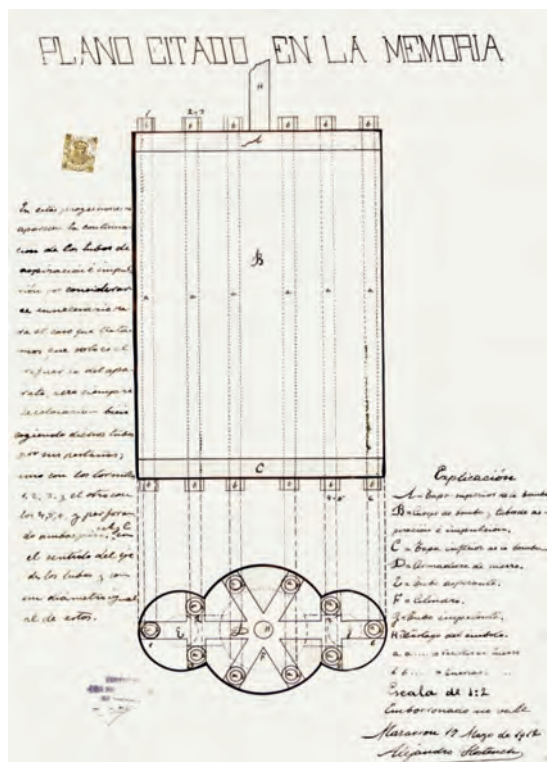 PLANO CITADO EN LA MEMORIA
H
1
2 y 3
A
B
C
En estas proyecciones no
aparecen la continua-
cion de los tubos de
aspiración é impul-
sión por considerar
se innecesario
el caso que trata
mos, que solo es el
del apa
rato, pero siempre
se colocarán bien
cogiendo dichos tubos
por sus pestañas,
uno con los tornillos
1, 2, 3, y el otro con
los 4, 5, 6, y perforan
do ambas
el sentido del eje
de los tubos y con
un diámetro igual
al de estos.
Explicación
A = Tapa superior de la bomba
B = Cuerpo de bomba y tubos de as-
piración é impulsión.
C = Tapa inferior de la bomba
D = Armadura de hierro.
E = Tubo aspirante.
F = Cilindro.
G = Tubo impelente.
H = Vástago del émbolo.
a a ... = Tornillos de hierro
b b ... = Tuercas " "
Escala de 1:2
Emborronado no vale
17 Mayo de 1912
Alejandro